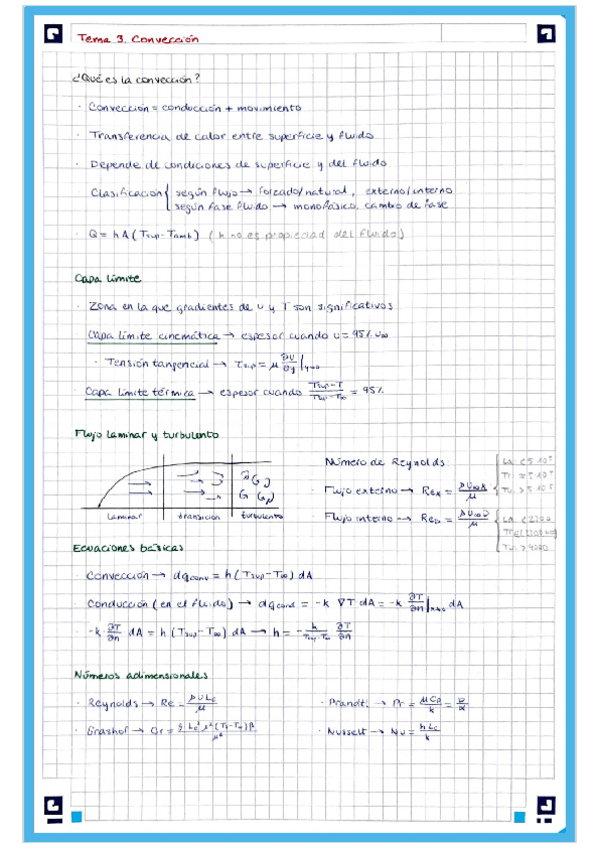 Tema 3. Convección
¿Qué es la convección?
· Convección = conducción + movimiento
· Transferencia de calor entre superficie y fluido
· Depende de condiciones de superficie y del fluido
· Clasificación { según flujo → forzado/natural, externo/interno
según fase fluido → monofásico, cambio de fase
· Q = h A (Tsup - Tamb) (h no es propiedad del fluido)
Capa límite
· Zona en la que gradientes de u y T son significativos
· Capa límite cinemática → espesor cuando u = 95% u∞
· Tensión tangencial → τsup = μ ∂u/∂y |y=0
· Capa límite térmica → espesor cuando Tsup-T / Tsup-T∞ = 95%
Flujo laminar y turbulento
laminar transición turbulento
Número de Reynolds
· Flujo externo → Rex = ρu∞x/μ { La < 5·10⁵
Tr = 5·10⁵
Tu > 5·10⁵
· Flujo interno → ReD = ρu∞D/μ { La < 2200
Tu > 4000
Ecuaciones básicas
· Convección → dqconv = h (Tsup - T∞) dA
· Conducción (en el fluido) → dqcond = -k ∇T dA = -k ∂T/∂n |n=0 dA
-k ∂T/∂n dA = h (Tsup - T∞) dA → h = - k/Tsup-T∞ ∂T/∂n
Números adimensionales
· Reynolds → Re = ρuLc/μ
· Prandtl → Pr = μCp/k = ν/α
· Grashof → Gr =
· Nusselt → Nu = hLc/k